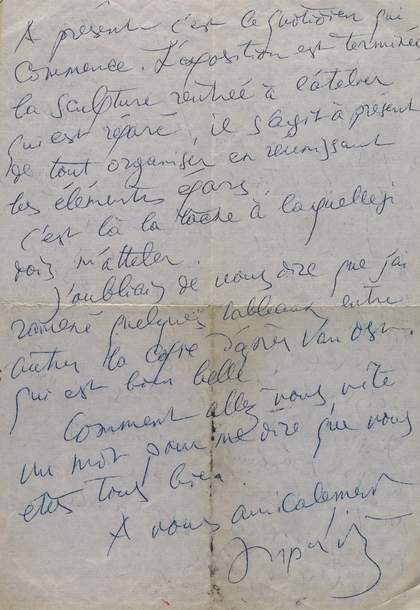 A présent c'est le quotidien qui
commence. L'exposition est terminée,
la sculpture rentrée à l'atelier
qui est réparé, il s'agit à présent
de tout organiser en réunissant
les éléments épars.
c'est là la tâche à laquelle j
dois m'atteler.
J'oubliais de vous dire que j'ai
ramené quelques tableaux, entre
autres la copie d'après Van
qui est bien belle
Comment allez-vous, vite
un mot pour me dire que vous
êtes tous bien.
A vous amicalement